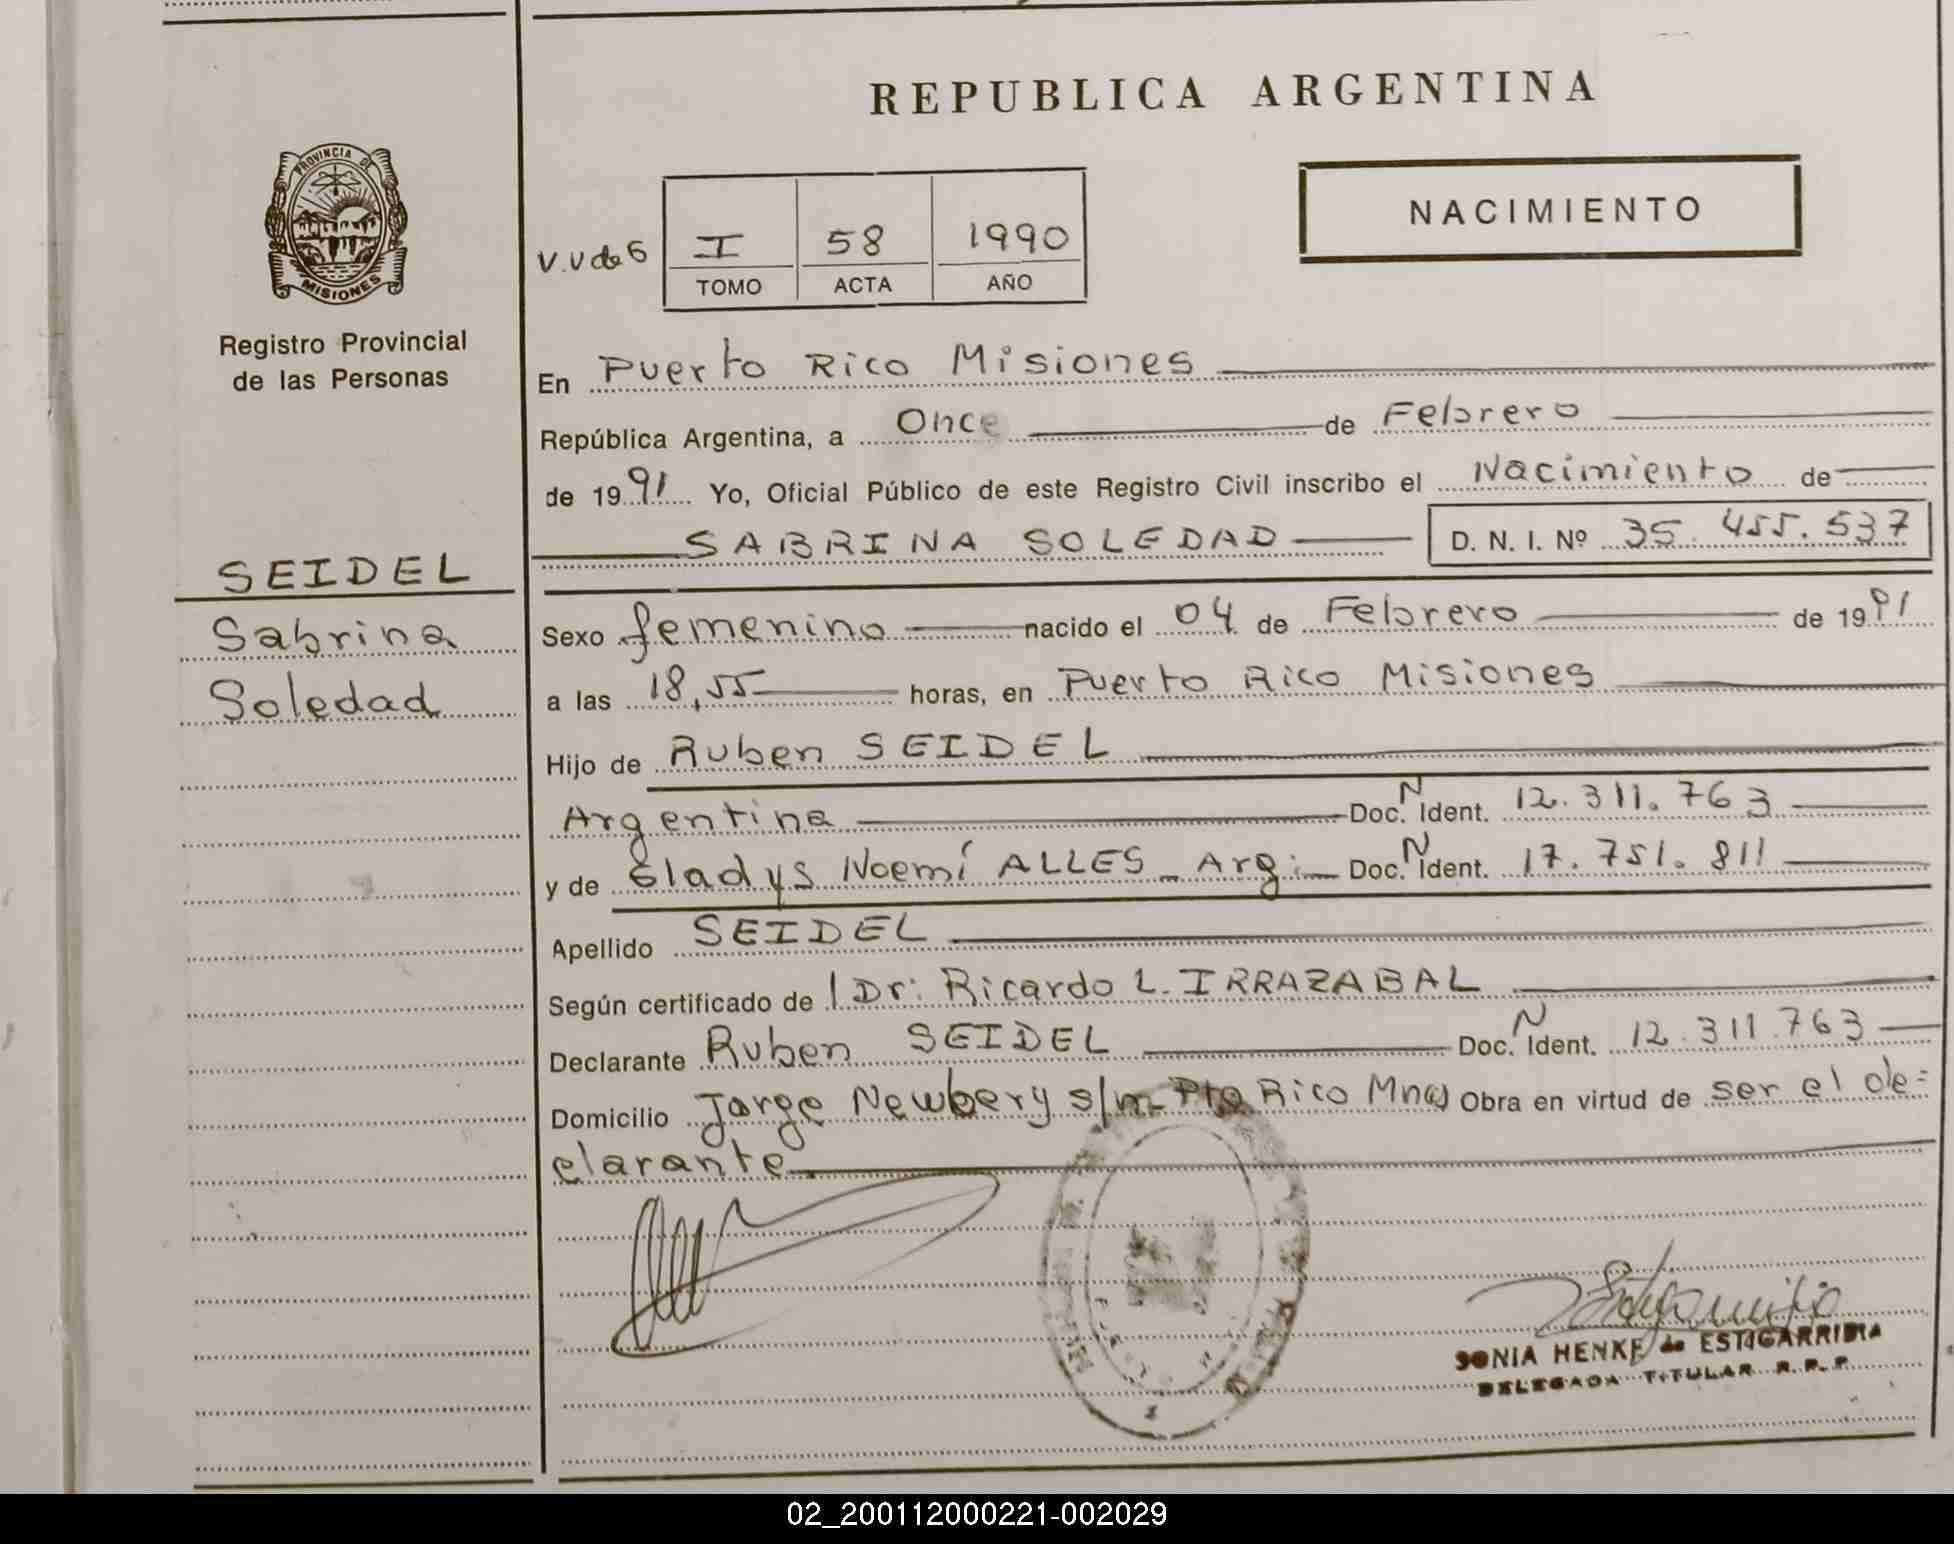 REPUBLICA ARGENTINA
PROVINCIA DE
MISIONES
Registro Provincial
de las Personas
NACIMIENTO
V.V de 6 I 58 1990
TOMO ACTA AÑO
En Puerto Rico Misiones
República Argentina, a Once de Febrero
de 1991 Yo, Oficial Público de este Registro Civil inscribo el Nacimiento de
SABRINA SOLEDAD D. N. I. Nº 35.455.537
SEIDEL
Sabrina
Soledad
Sexo femenino nacido el 04 de Febrero de 1991
a las 18,55 horas, en Puerto Rico Misiones
Hijo de Ruben SEIDEL
Argentina Doc. N Ident. 12.311.763
y de Gladys Noemí ALLES - Arg: Doc. N Ident. 17.751.811
Apellido SEIDEL
Según certificado de Dr: Ricardo L. IRRAZABAL
Declarante Ruben SEIDEL Doc. N Ident. 12.311.763
Domicilio Jorge Newbery s/n- Pto Rico Mnes Obra en virtud de ser el de=
clarante
SONIA HENKE de ESTIGARRIBIA
DELEGADA TITULAR R. P. P.
02_200112000221-002029